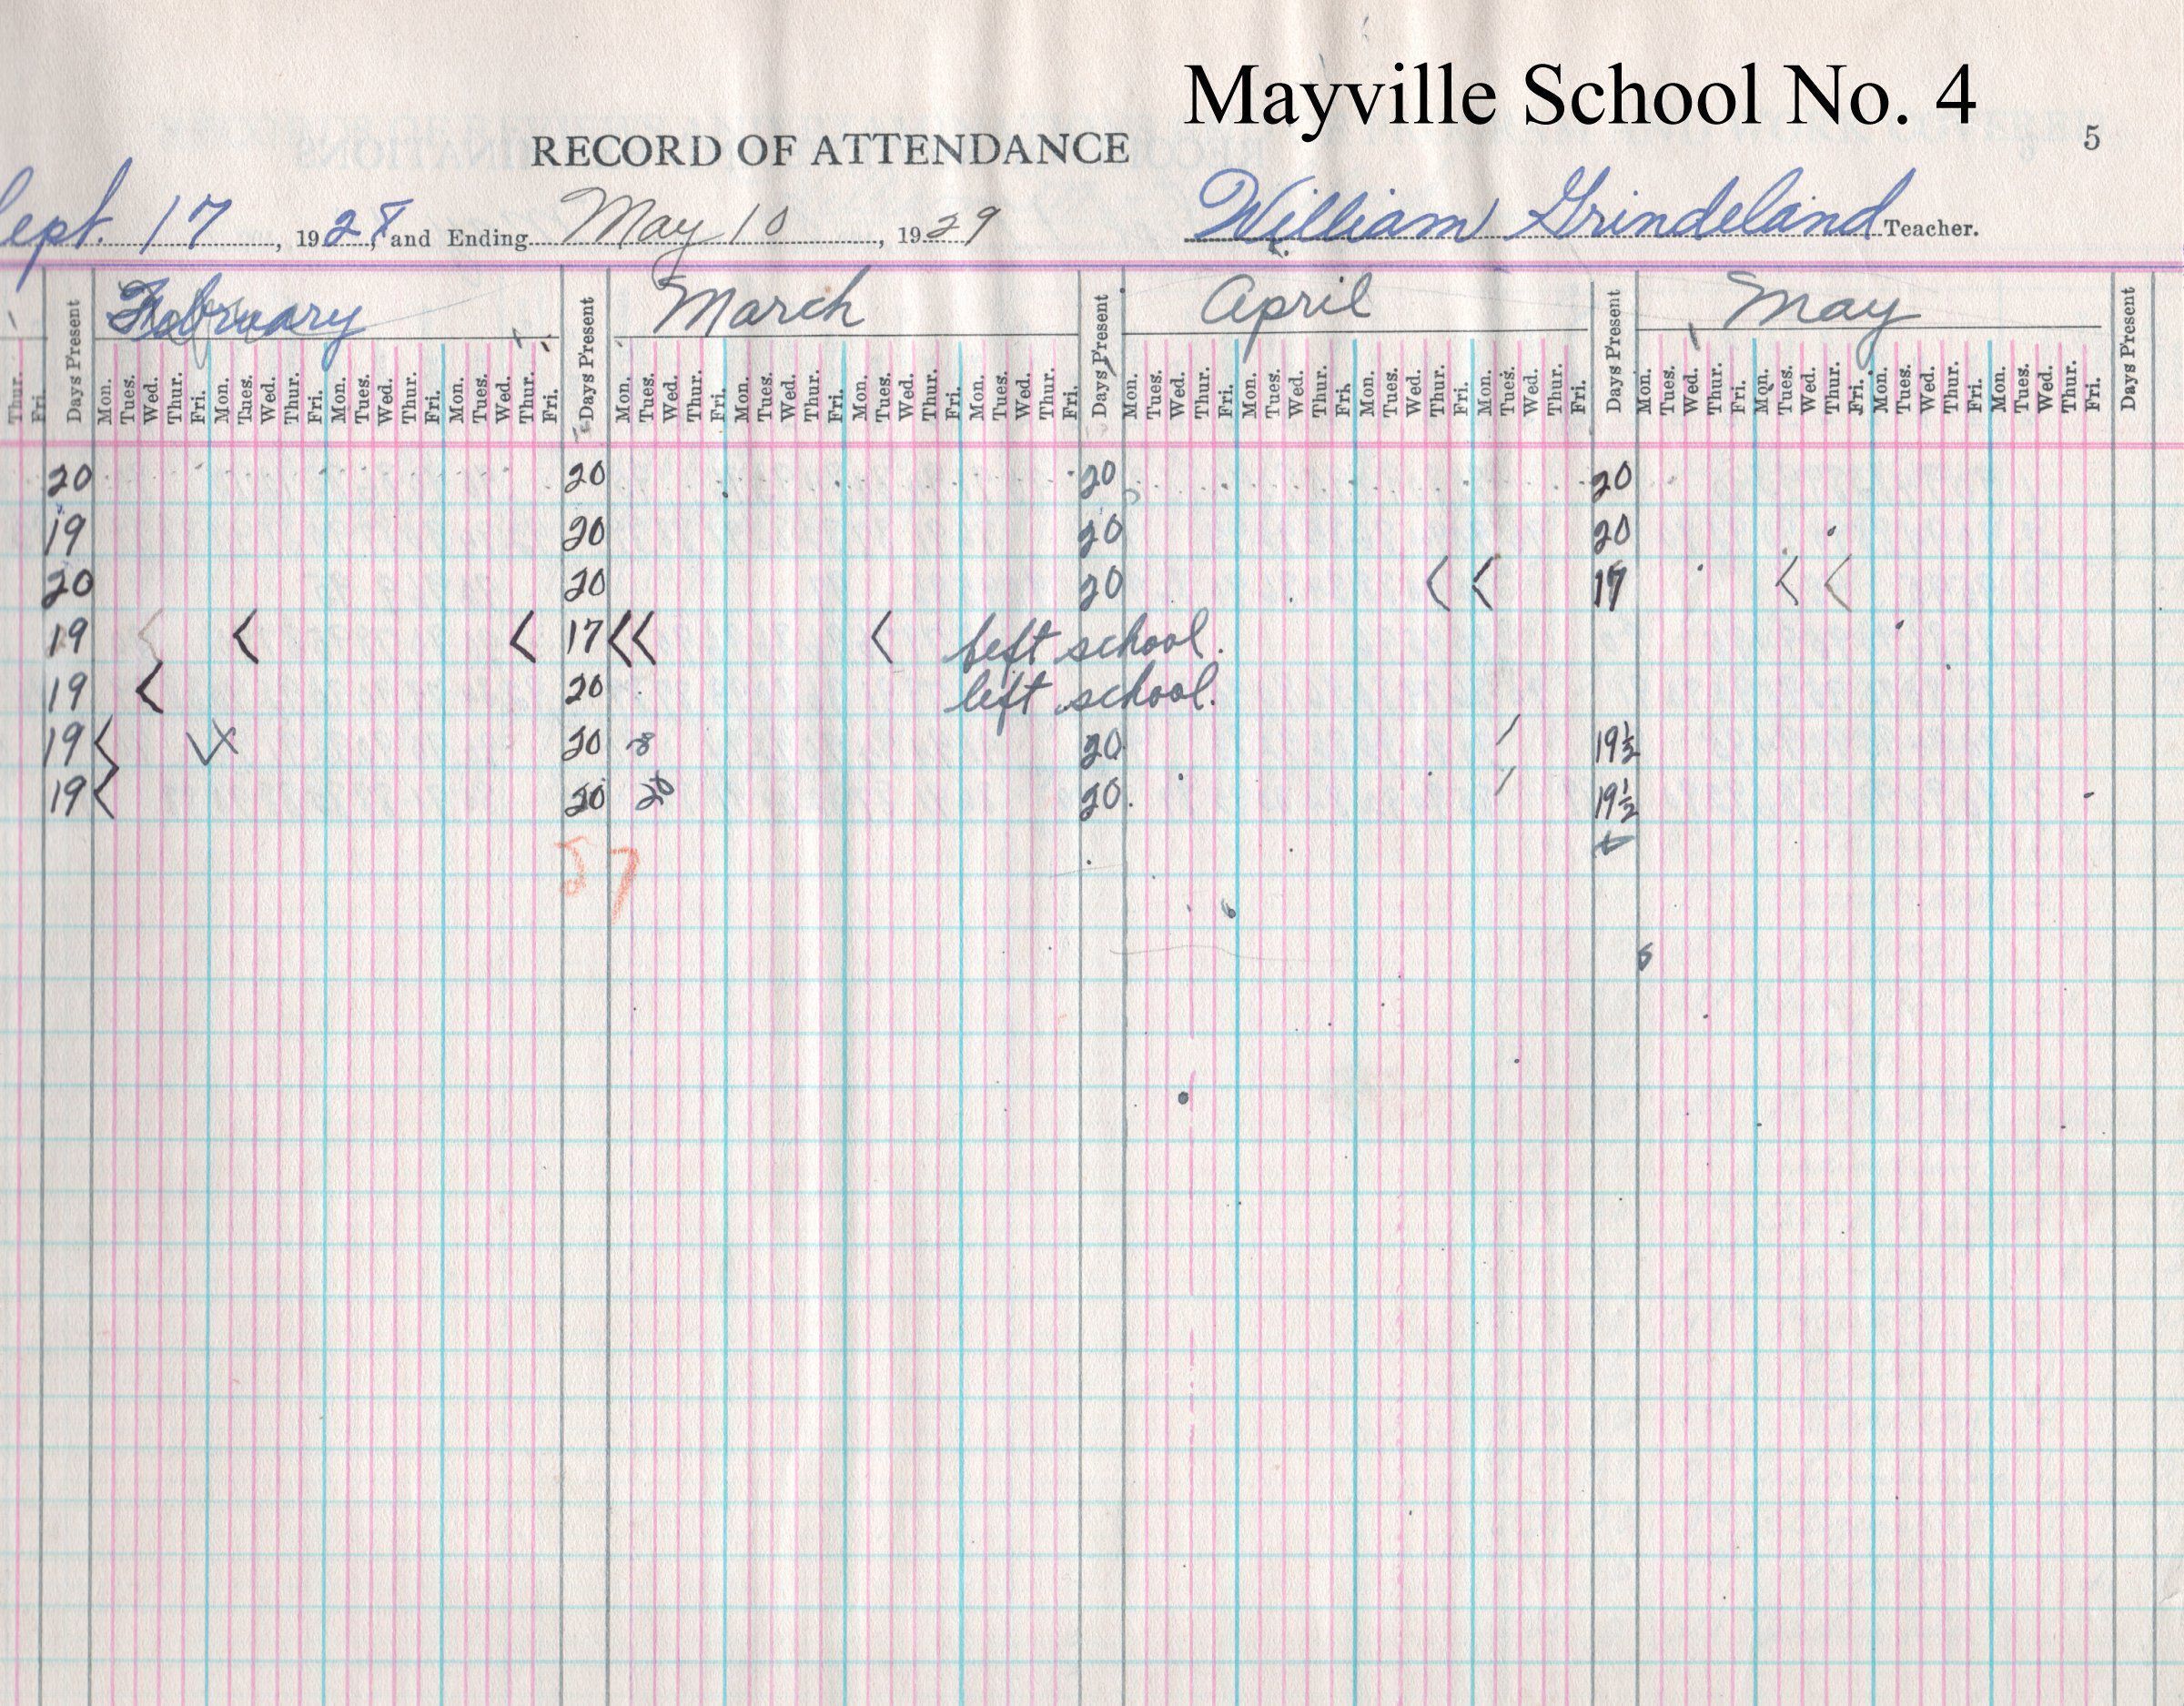 Mayville School No. 4
RECORD OF ATTENDANCE 5
Sept. 17, 1928, and Ending May 10, 1929 William Grindeland Teacher.
Days Present February Days Present March Days Present April Days Present May Days Present
Thur. Fri. Mon. Tues. Wed. Thur. Fri. Mon. Tues. Wed. Thur. Fri. Mon. Tues. Wed. Thur. Fri. Mon. Tues. Wed. Thur. Fri. Mon. Tues. Wed. Thur. Fri. Mon. Tues. Wed. Thur. Fri. Mon. Tues. Wed. Thur. Fri. Mon. Tues. Wed. Thur. Fri. Mon. Tues. Wed. Thur. Fri. Mon. Tues. Wed. Thur. Fri. Mon. Tues. Wed. Thur. Fri. Mon. Tues. Wed. Thur. Fri. Mon. Tues. Wed. Thur. Fri. Mon. Tues. Wed. Thur. Fri. Mon. Tues. Wed. Thur. Fri. Mon. Tues. Wed. Thur. Fri.
20 20 20 20
19 20 20 20
20 20 20 17
19 17 left school.
19 20 left school.
19 20 20 19½
19 20 20 20 19½
57